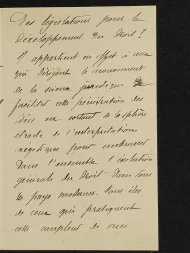 Des législations pour le
développement du Droit ?
Il appartient en effet à ceux
qui dirigent le mouvement
de la science juridique de
faciliter cette pénétration des
idées en sortant de la sphère
étroite de l'interprétation
exégétique pour embrasser
dans l'ensemble l'évolution
générale du Droit dans tous
les pays modernes. Tous ils
de ceux qui pratiquent
cette ampleur de vues